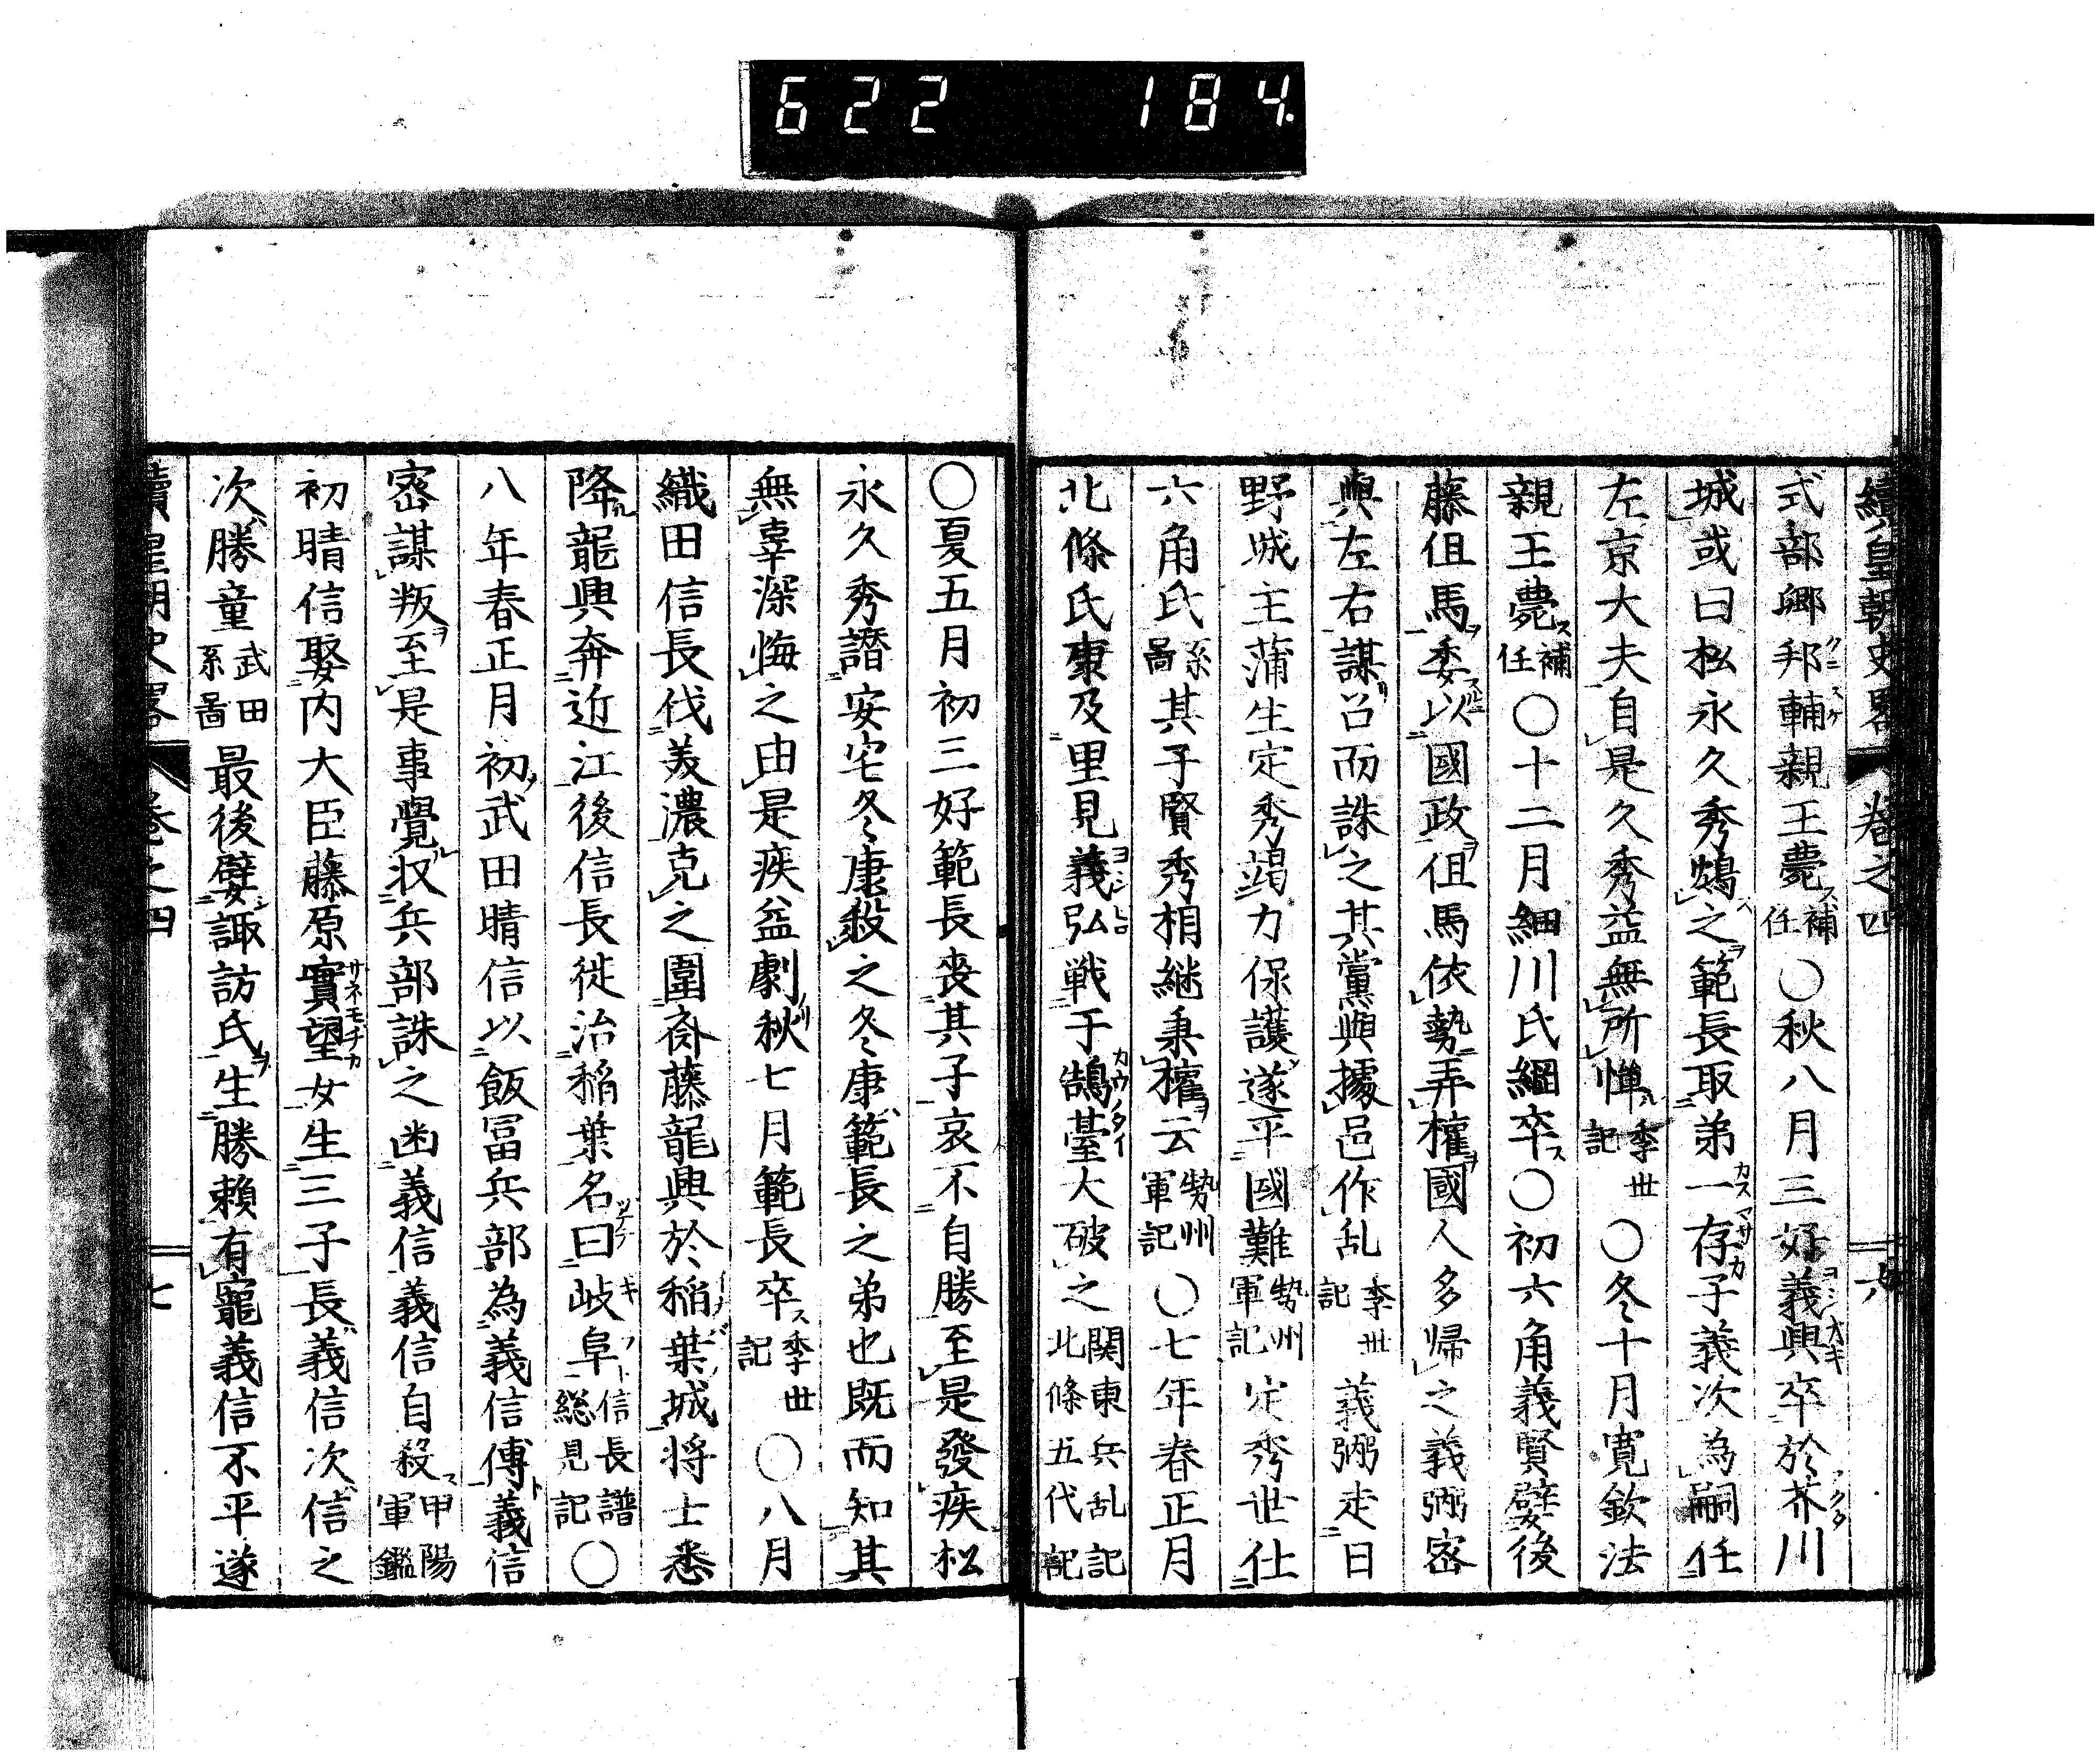 622 184.
續皇朝史畧 卷之四 六
式部卿邦輔親王薨補任○秋八月三好義興卒於芥川
城或曰松永久秀鴆之範長取弟一存子義次為嗣任
左京大夫自是久秀益無所憚季世記○冬十月寬欽法
親王薨補任○十二月細川氏綱卒○初六角義賢嬖後
藤但馬委以國政但馬依勢弄權國人多歸之義弼密
與左右謀召而誅之其黨與據邑作乱季世記義弼走日
野城主蒲生定秀竭力保護遂平國難勢州軍記定秀世仕
六角氏系啚其子賢秀相継秉權云勢州軍記○七年春正月
北條氏康及里見義弘戦于鵠臺大破之関東兵乱記北條五代記
○夏五月初三好範長喪其子哀不自勝至是發疾松
永久秀譖安宅冬康殺之冬康範長之弟也既而知其
無辜深悔之由是疾益劇秋七月範長卒季世記○八月
織田信長伐美濃克之圍斎藤龍興於稲葉城将士悉
降龍興奔近江後信長徙治稲葉名曰岐阜信長譜総見記○
八年春正月初武田晴信以飯冨兵部為義信傅義信
密謀叛至是事覺収兵部誅之幽義信義信自殺甲陽軍鑑
初晴信娶内大臣藤原實望女生三子長義信次信之
次勝童武田系啚最後嬖諏訪氏生勝賴有寵義信不平遂
續皇朝史畧 卷之四 七